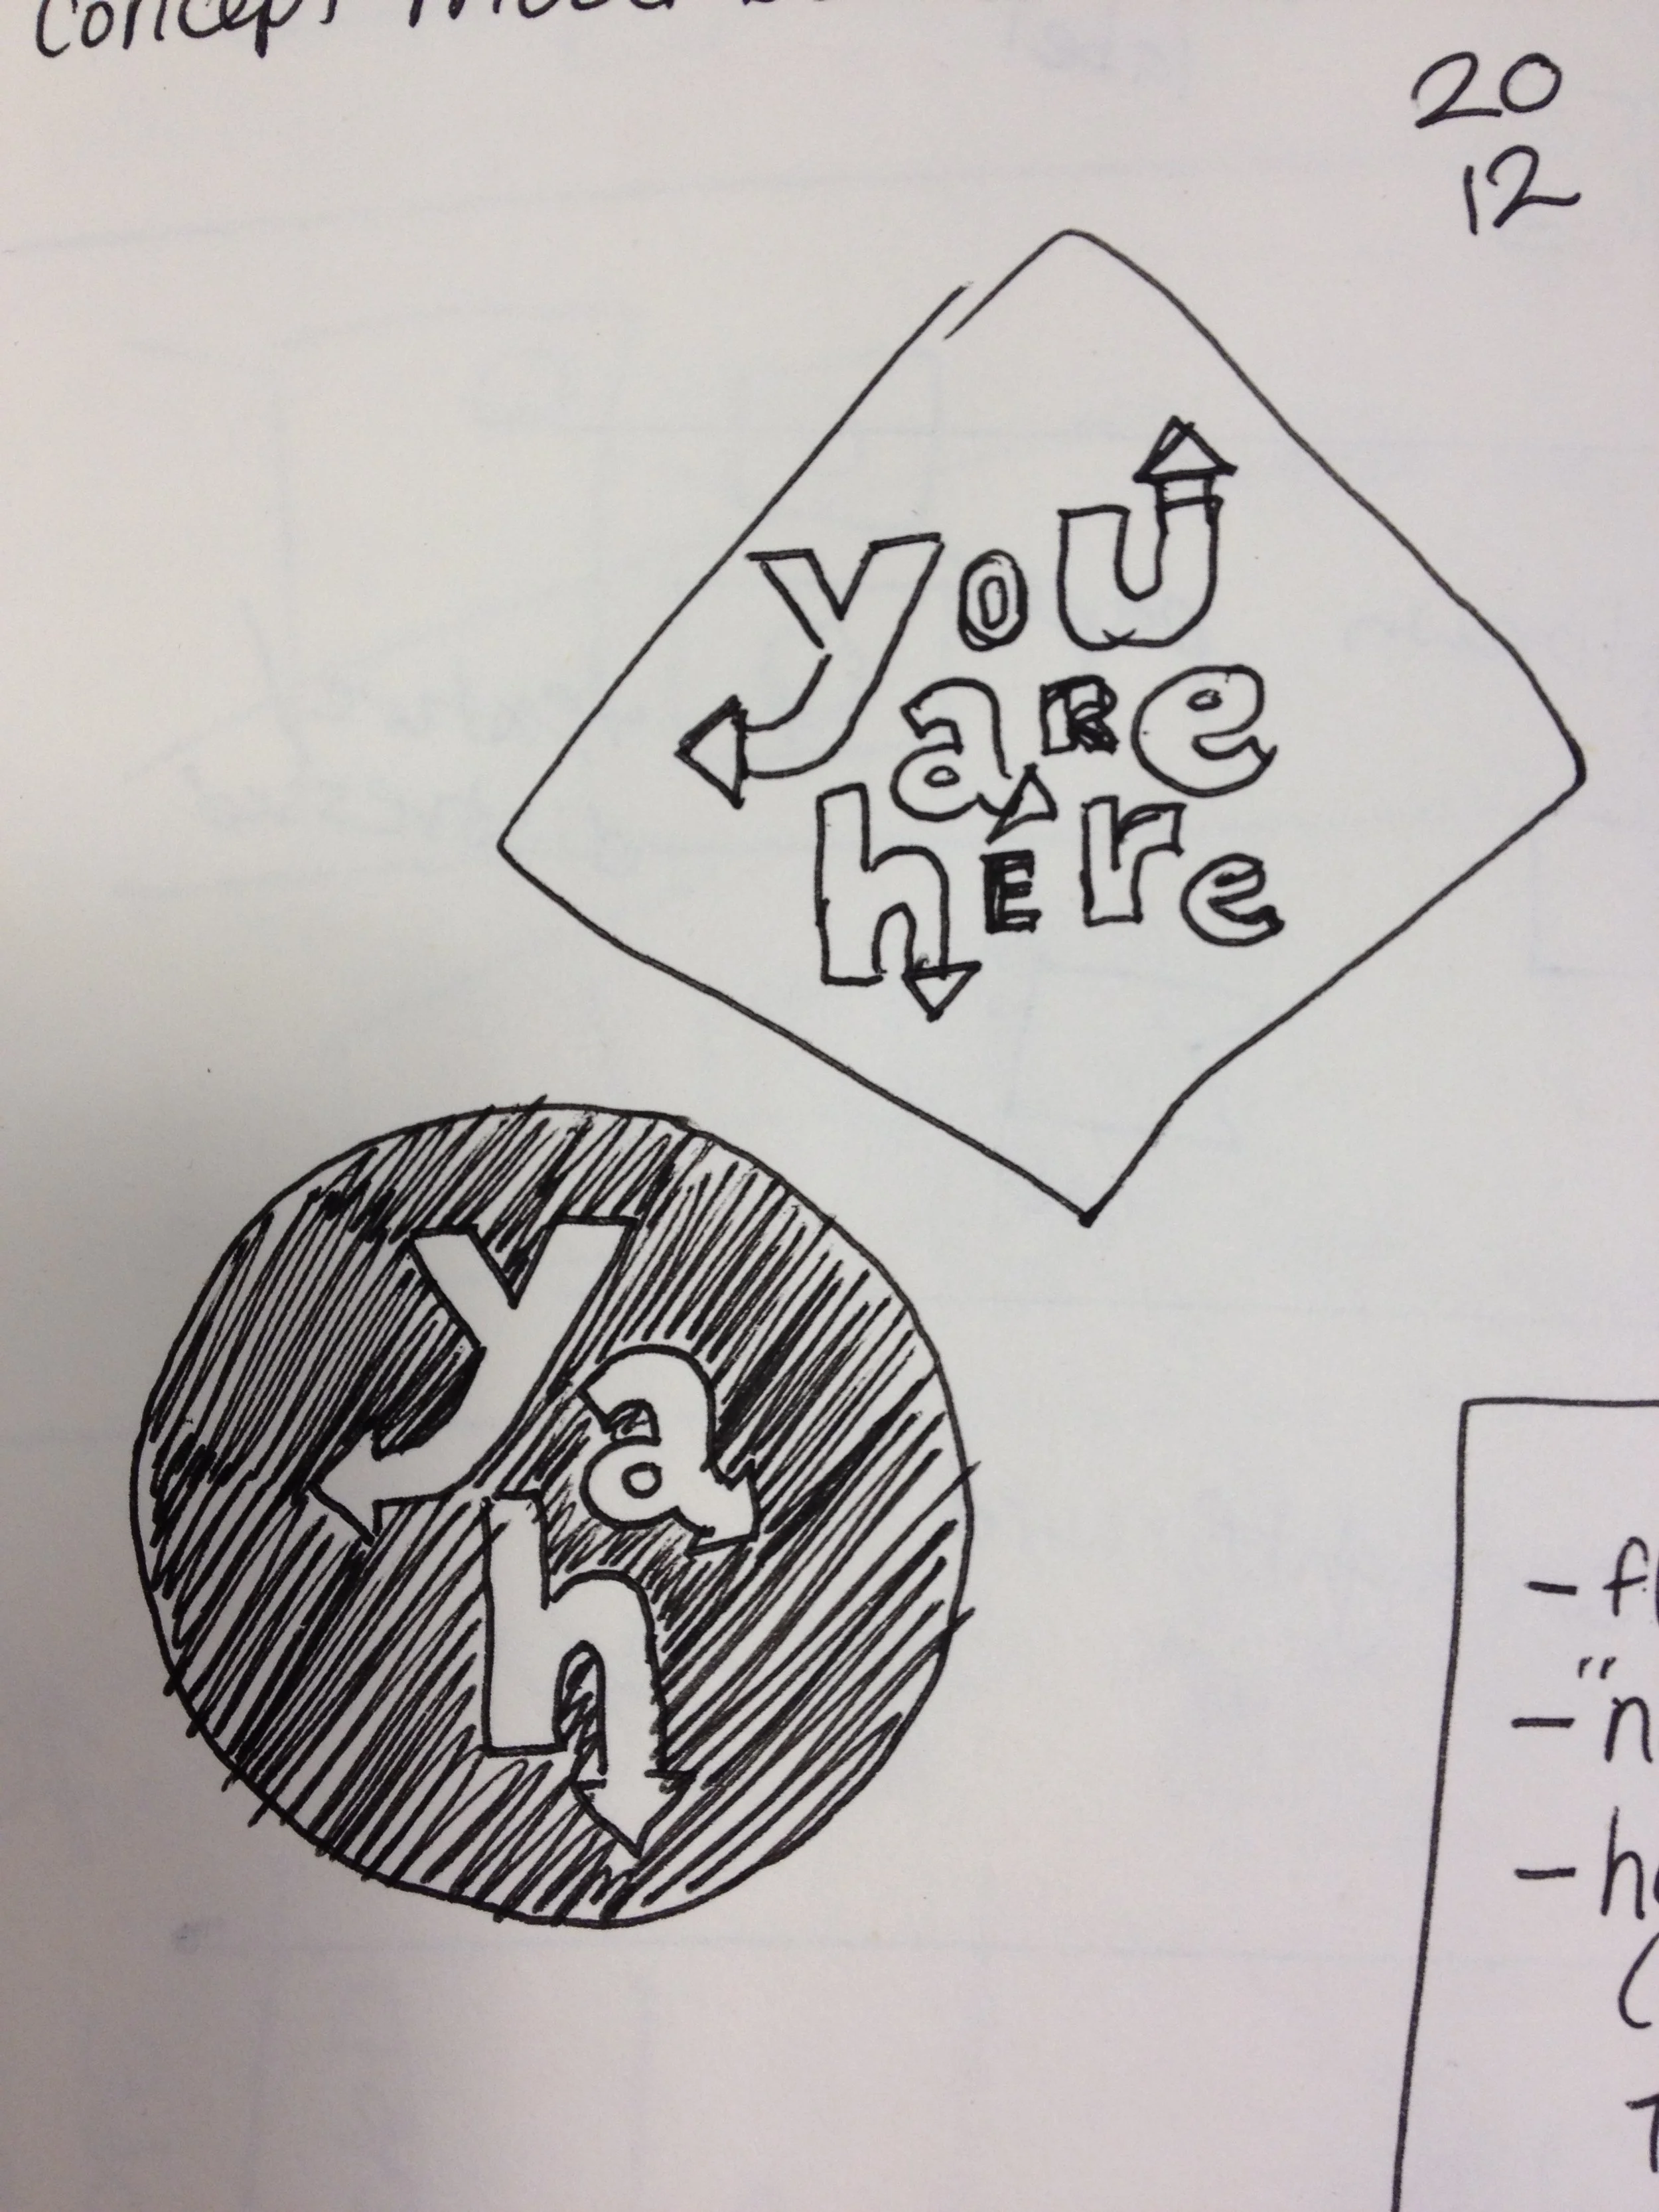 concept
20
12
you
aRe
hEre
y
a
h
- f
- "n
- h